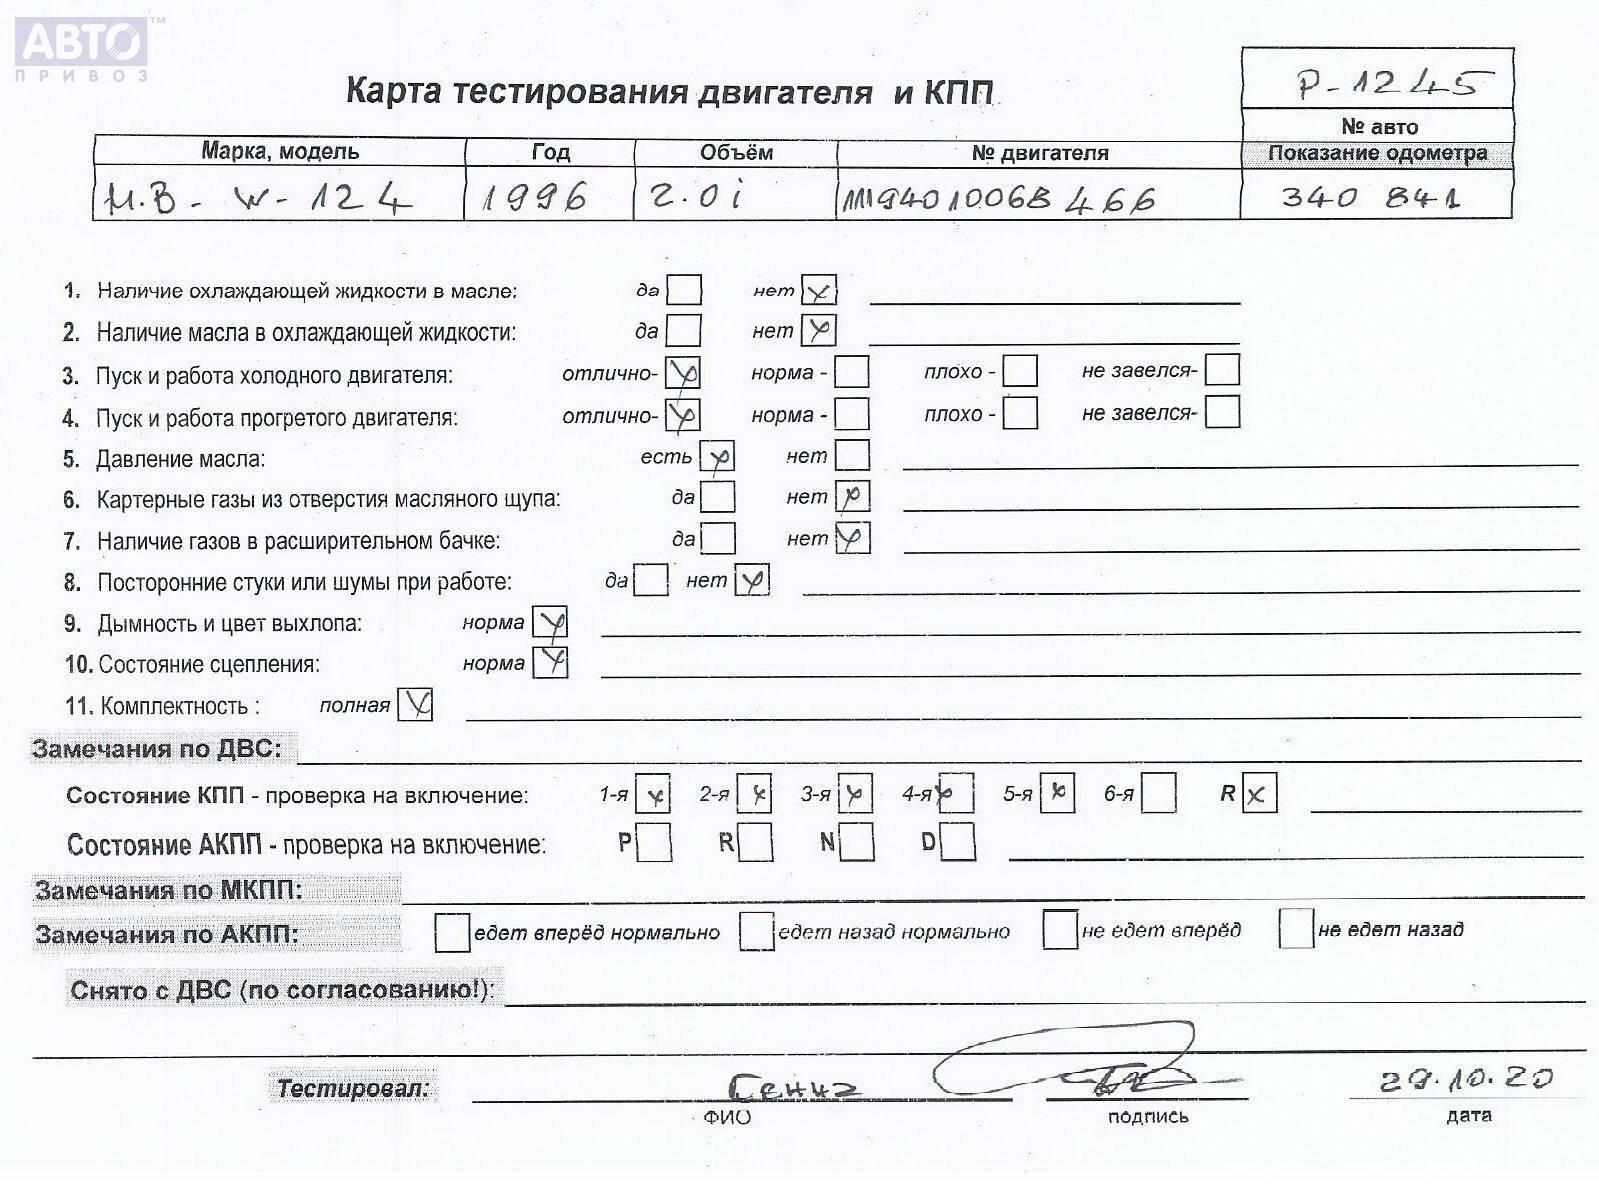 АВТО™
ПРИВОЗ
Карта тестирования двигателя и КПП
Р-1245
№ авто
Марка, модель Год Объём № двигателя Показание одометра
М.В- W-124 1996 2.0i 340 841
1. Наличие охлаждающей жидкости в масле: да нет
2. Наличие масла в охлаждающей жидкости: да нет
3. Пуск и работа холодного двигателя: отлично- норма - плохо - не завелся-
4. Пуск и работа прогретого двигателя: отлично- норма - плохо - не завелся-
5. Давление масла: есть нет
6. Картерные газы из отверстия масляного щупа: да нет
7. Наличие газов в расширительном бачке: да нет
8. Посторонние стуки или шумы при работе: да нет
9. Дымность и цвет выхлопа: норма
10. Состояние сцепления: норма
11. Комплектность : полная
Замечания по ДВС:
Состояние КПП - проверка на включение: 1-я 2-я 3-я 4-я 5-я 6-я R
Состояние АКПП - проверка на включение: P R N D
Замечания по МКПП:
Замечания по АКПП: едет вперёд нормально едет назад нормально не едет вперёд не едет назад
Снято с ДВС (по согласованию!):
Тестировал: .10.20
ФИО подпись дата